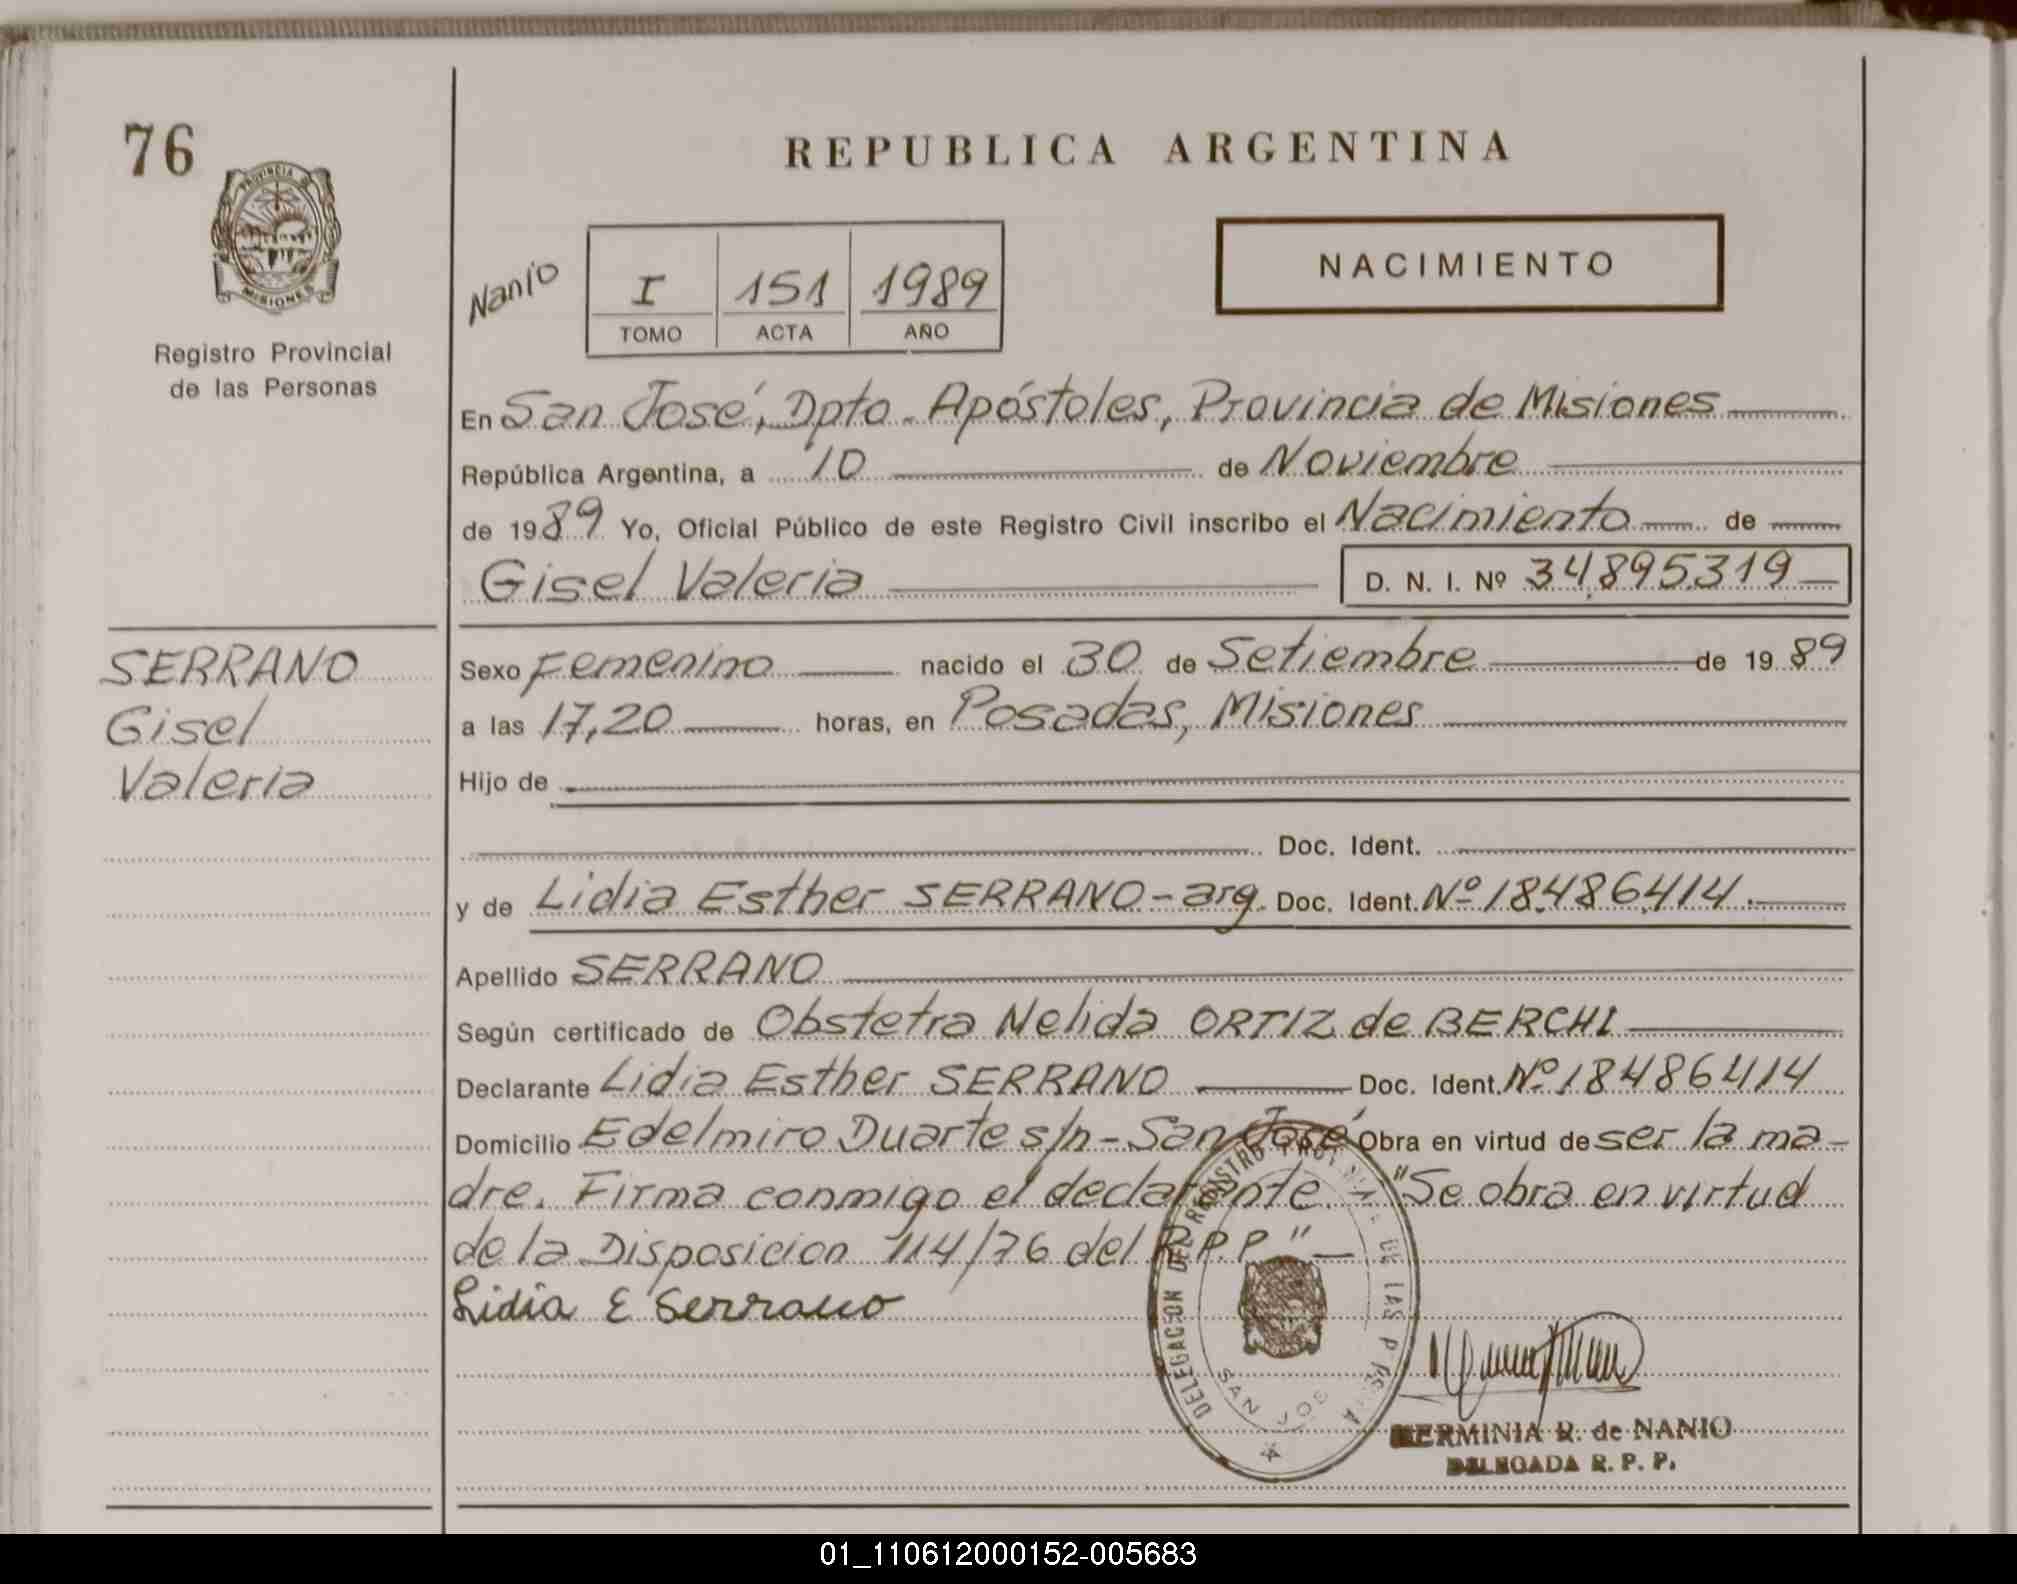 76
PROVINCIA DE
MISIONES
Registro Provincial
de las Personas
SERRANO
Gisel
Valeria
REPUBLICA ARGENTINA
Nanio
I 151 1989
TOMO ACTA AÑO
NACIMIENTO
En San José, Dpto. Apóstoles, Provincia de Misiones
República Argentina, a 10 de Noviembre
de 1989 Yo, Oficial Público de este Registro Civil inscribo el Nacimiento de
Gisel Valeria D. N. I. Nº 34.895.319
Sexo Femenino nacido el 30 de Setiembre de 1989
a las 17,20 horas, en Posadas, Misiones
Hijo de
Doc. Ident.
y de Lidia Esther SERRANO - arg. Doc. Ident. Nº 18.486.414.
Apellido SERRANO
Según certificado de Obstetra Nelida ORTIZ de BERCHI
Declarante Lidia Esther SERRANO Doc. Ident. Nº 18486414
Domicilio Edelmiro Duarte s/n - San José Obra en virtud de ser la ma-
dre. Firma conmigo el declarante. "Se obra en virtud
de la Disposicion 114/76 del R.P.P"
Lidia E Serrano
DELEGACION DEL REGISTRO PROVINCIAL DE LAS PERSONAS
SAN JOSE
HERMINIA R. de NANIO
DELEGADA R. P. P.
01_110612000152-005683